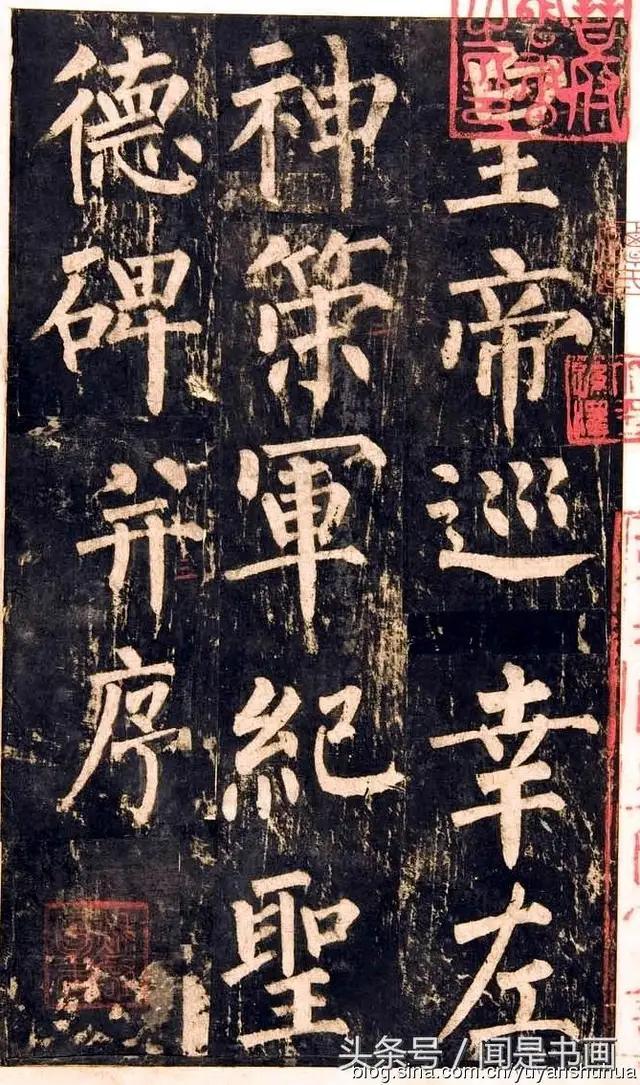 皇帝巡幸左
神策軍紀聖
德碑并序
头条号 / 闻是书画
blog.sina.com.cn/yuyanshuhua